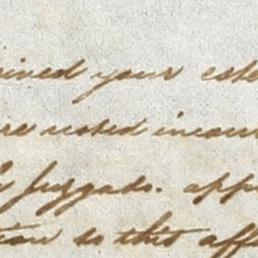 ined your este
re noted incon
Juzgado. app
tion to this aff